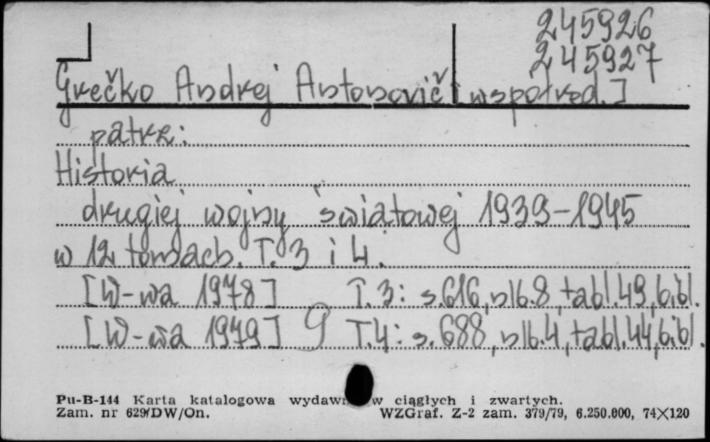 245926
245927
Grečko Andrej Antonovič [współred.]
patrz:
Historia
drugiej wojny światowej 1939-1945
w 12 tomach. T. 3 i 4.
[W-wa 1978] T. 3: s. 616, nlb. 8, tabl. 49, bibl.
[W-wa 1979] T. 4: s. 688, nlb. 4, tabl. 44, bibl.
Pu-B-144 Karta katalogowa wydawn w ciągłych i zwartych.
Zam. nr 629/DW/On. WZGraf. Z-2 zam. 379/79, 6.250.000, 74×120